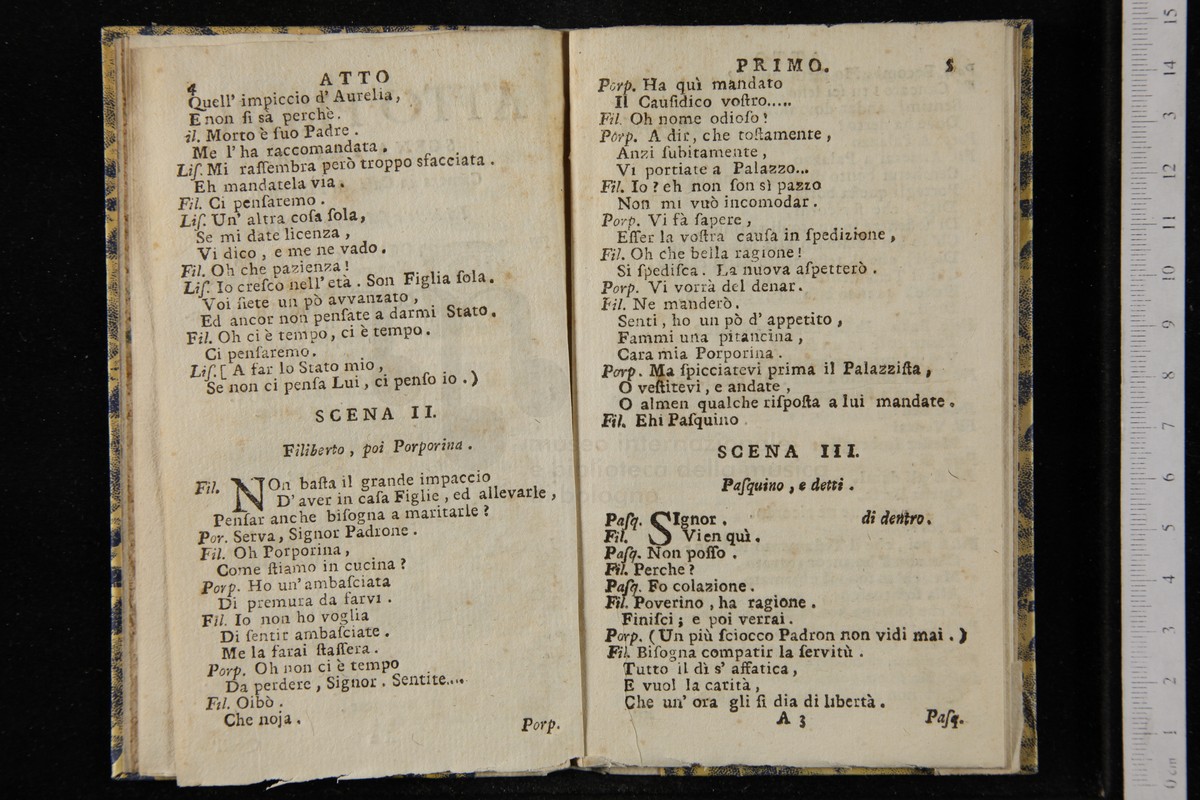 4
ATTO
Quell' impiccio d' Aurelia,
E non ſi sà perchè.
il. Morto è ſuo Padre.
Me l' ha raccomandata.
Liſ. Mi raſſembra però troppo sfacciata.
Eh mandatela via.
Fil. Ci penſaremo.
Liſ. Un' altra coſa ſola,
Se mi date licenza,
Vi dico, e me ne vado.
Fil. Oh che pazienza!
Liſ. Io creſco nell' età. Son Figlia ſola.
Voi ſiete un pò avvanzato,
Ed ancor non penſate a darmi Stato.
Fil. Oh ci è tempo, ci è tempo.
Ci penſaremo.
Liſ. [ A far lo Stato mio,
Se non ci penſa Lui, ci penſo io.)
SCENA II.
Filiberto, poi Porporina.
Fil. NOn baſta il grande impaccio
D' aver in caſa Figlie, ed allevarle,
Penſar anche biſogna a maritarle?
Por. Serva, Signor Padrone.
Fil. Oh Porporina,
Come ſtiamo in cucina?
Porp. Ho un' ambaſciata
Di premura da farvi.
Fil. Io non ho voglia
Di ſentir ambaſciate.
Me la farai ſtaſſera.
Porp. Oh non ci è tempo
Da perdere, Signor. Sentite....
Fil. Oibò.
Che noja.
Porp.
PRIMO. 5
Porp. Ha quì mandato
Il Cauſidico voſtro.....
Fil. Oh nome odioſo!
Porp. A dir, che toſtamente,
Anzi ſubitamente,
Vi portiate a Palazzo...
Fil. Io? eh non ſon sì pazzo
Non mi vuò incomodar.
Porp. Vi fà ſapere,
Eſſer la voſtra cauſa in ſpedizione,
Fil. Oh che bella ragione!
Si ſpediſca. La nuova aſpetterò.
Porp. Vi vorrà del denar.
Fil. Ne manderò.
Senti, ho un pò d' appetito,
Fammi una pitancina,
Cara mia Porporina.
Porp. Ma ſpicciatevi prima il Palazziſta,
O veſtitevi, e andate,
O almen qualche riſpoſta a lui mandate.
Fil. Ehi Paſquino
SCENA III.
Paſquino, e detti.
Paſq. SIgnor. di dentro.
Fil. Vien quì.
Paſq. Non poſſo.
Fil. Perche?
Paſq. Fo colazione.
Fil. Poverino, ha ragione.
Finiſci; e poi verrai.
Porp. (Un più ſciocco Padron non vidi mai.)
Fil. Biſogna compatir la ſervitù.
Tutto il dì s' affatica,
E vuol la carità,
Che un' ora gli ſi dia di libertà.
A 3 Paſq.
museo internaz
e biblioteca della musica
bologna
15
14
13
12
11
10
9
8
7
6
5
4
3
2
1
0 cm